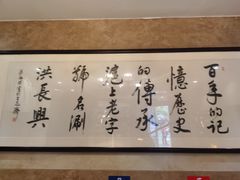 百年的记
憶歷史
的傳承
滬上老字
號名涮
洪長興